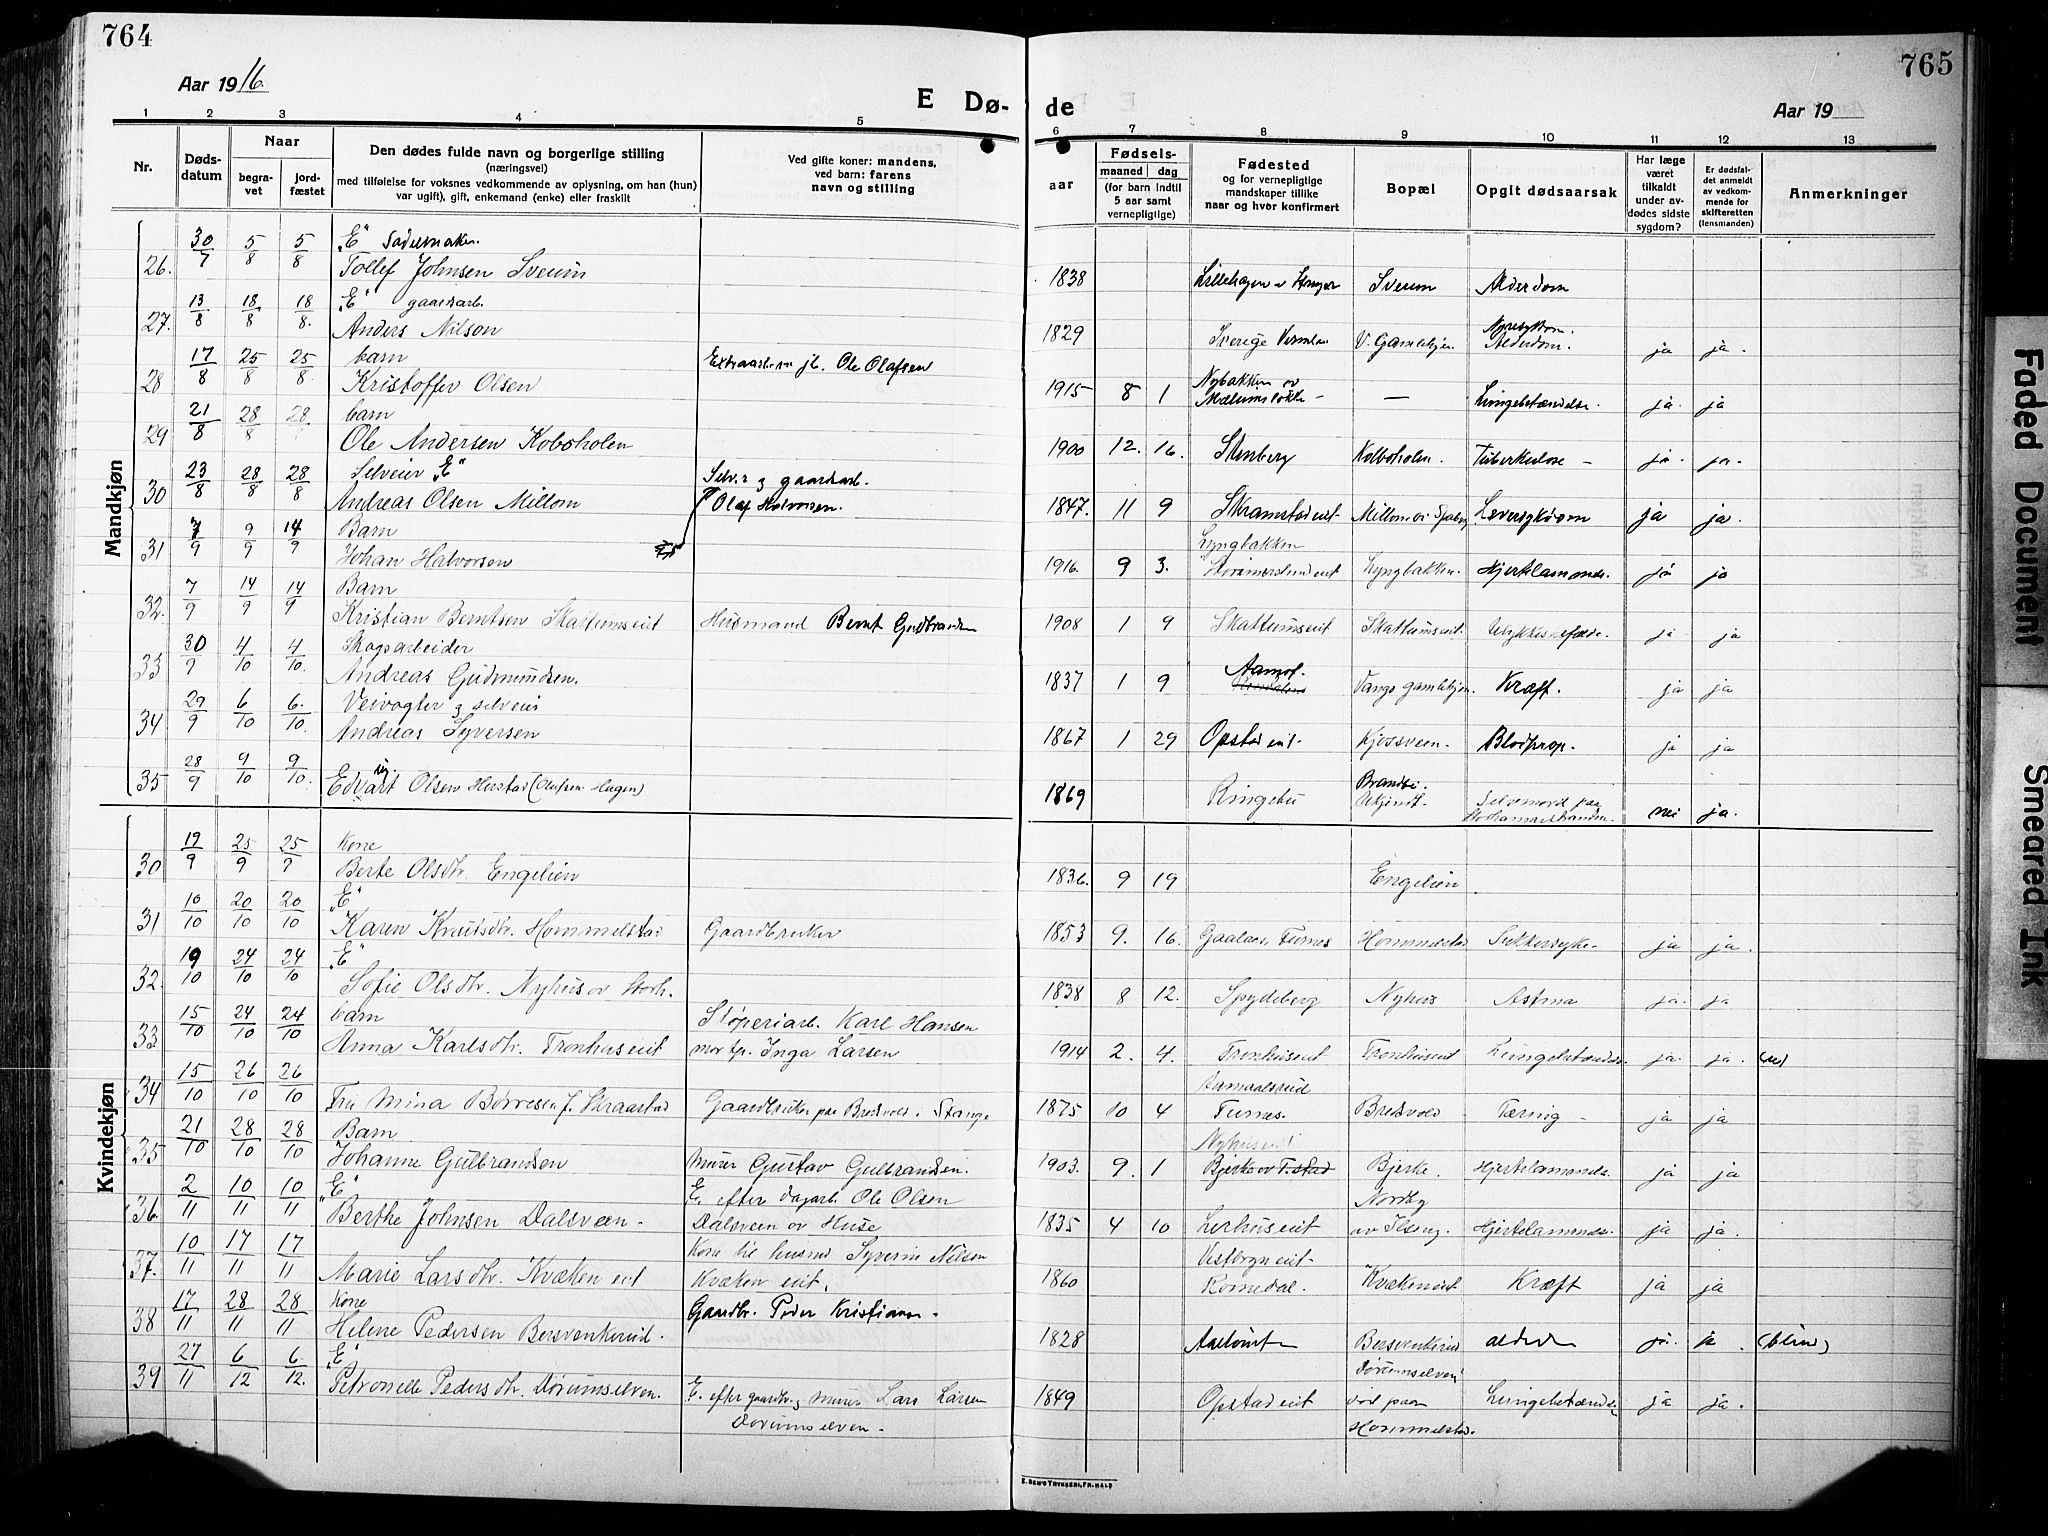 764
Aar 1916.
E Dø-
1 2 3 4 5
Nr.
Døds-
datum
Naar
begra-
vet
jord-
fæstet
Den dødes fulde navn og borgerlige stilling
(næringsvei)
med tilføielse for voksnes vedkommende av oplysning, om han (hun)
var ugift), gift, enkemand (enke) eller fraskilt
Ved gifte koner: mandens,
ved barn: farens
navn og stilling
Mandkjøn
30/7 5/8 5/8 „E“ Sadelmaker
26. Tollef Johnsen Sveum
13/8 18/8 18/8. „E“ gaardarb.
27. Anders Nilson
17/8 25/8 25/8 barn Ole Olafsen
28 Kristoffer Olsen
21/8 28/8 28. barn
29 Ole Andersen Kolboholen
23/8 28/8 28/8 Selveier „E“ Selv.r g gaardarb.
30 Andreas Olsen Millom Olaf Halvorsen.
7/9 9/9 14/9 Barn
31 Johan Halvorsen
7/9 14/9 14/9 Barn
32. Kristian Berntsen Skattumseiet Husmand Bernt Gudbrandsen
30/9 4/10 4/10. Skogsarbeider
33 Andreas Gudmundsen.
29/9 6/10 6./10. Veivogter g selveier
34 Andreas Syversen
28/9 9/10 9/10. ug.
35 Edvart Olsen Herstad (Olufsen Hagen)
Kvindekjøn
19/9 25/9 25/9 Kone
30 Berte Olsdtr. Engelien
10/10 20/10 20/10 „E“
31 Karen Knutsdtr. Hommelstad Gaardbruker
19/10 24/10 24/10 „E“
32. Sofie Olsdtr. Nyhus ov Storh.
15/10 24/10 24/10 barn Støperiarb. Karl Hansen
33 Anna Karlsdtr. Tronhuseiet mor tp. Inga Larsen
15/10 26/10 26/10
34 Fru Mina Børresen f. Skraastad Gaardbruker paa Bredvold i Stange
21/10 28/10 28/10 Barn
35 Johanne Gulbrandsen Murer Gustav Gulbrandsen.
2/11 10/11 10/11 „E“ E. efter dagarb. Ole Olsen
36. Berthe Johnsen Dalsveen. Dalsveen ov Huse
10/11 17/11 17/11 Kone til husmd Syverin Nilsen
37. Marie Larsdtr. Kvæken eiet Kvæken eiet.
17/11 28/11 28/11 Kone Gaardbr. Peder Kristiansen
38 Helene Pedersen Bersvenkerud.
27/11 6/12 6./12. „E“
39 Petronelle Pedersdtr. Dørumselven. E. efter gaardbr. g murer Lars Larsen
Dørumselven.
765
de
Aar 19
6 7 8 9 10 11 12 13
aar
Fødsels-
maaned dag
(for barn indtil
5 aar samt
vernepligtige)
Fødested
og for vernepligtige
mandskaper tillike
naar og hvor konfirmert
Bopæl
Opgit dødsaarsak
Har læge
været
tilkaldt
under av-
dødes sidste
sygdom?
Er dødsfal-
det anmeldt
av vedkom-
mende for
skifteretten
(lensmanden)
Anmerkninger
1838 Sveum Alderdom
Nyresykdom.
1829 Sverige V. Gamlehjem. Alderdom. ja ja.
Nybakken ov
1915 8 1 Mælumsløkk – — Lungebetændelse. ja. ja
1900 12. 16. Stenberg Kolboholen. Tuberkulose – ja. ja.
1847. 11 9 Skramstadeiet Millom Leversykdom ja ja.
Lyngbakken
1916. 9 3. Lyngbakken. Hjertelammelse. ja ja
1908 1 9 Skattumseiet Skattumseiet. Ulykkestilfælde. ja ja
Aamot.
1837 1 9 Vangs gamlehjem. Kræft. ja ja
1867 1 29 Opstadeiet. Kjossveen. Blodprop. ja ja
Brandbu.
1869 Ringebu Ukjendt. Selvmord paa nei ja.
Storhamarstranden.
1836. 9 19 Engelien
1853 9. 16. Gaalaas, Furnes Hommelstad Sukkersyke. ja ja.
1838 8 12. Spydeberg Nyhus Astma ja. ja
1914 2. 4. Tronhuseiet Tronhuseiet Lungebetændelse ja. ja.
1875 10 4 Furnes. Bredvold Tæring – ja ja
Nyhuseiet
1903. 9. 1 Bjerke ov Bjerke. Hjertelammelse ja ja
Nordby
1835 4 10 Lerhuseiet ov Ilseng. Hjertelammelse. ja ja.
1860 Romedal. Kvækeneiet Kræft ja ja
1828 Bersvenkerud alderd. ja. ja. (blind)
Dørumselven
1849 Opstadeiet død paa Lungebetændelse ja ja.
Hommelstad.
E. SEM'S TRYKKERI, FR.HALD
Faded Document
Smeared Ink